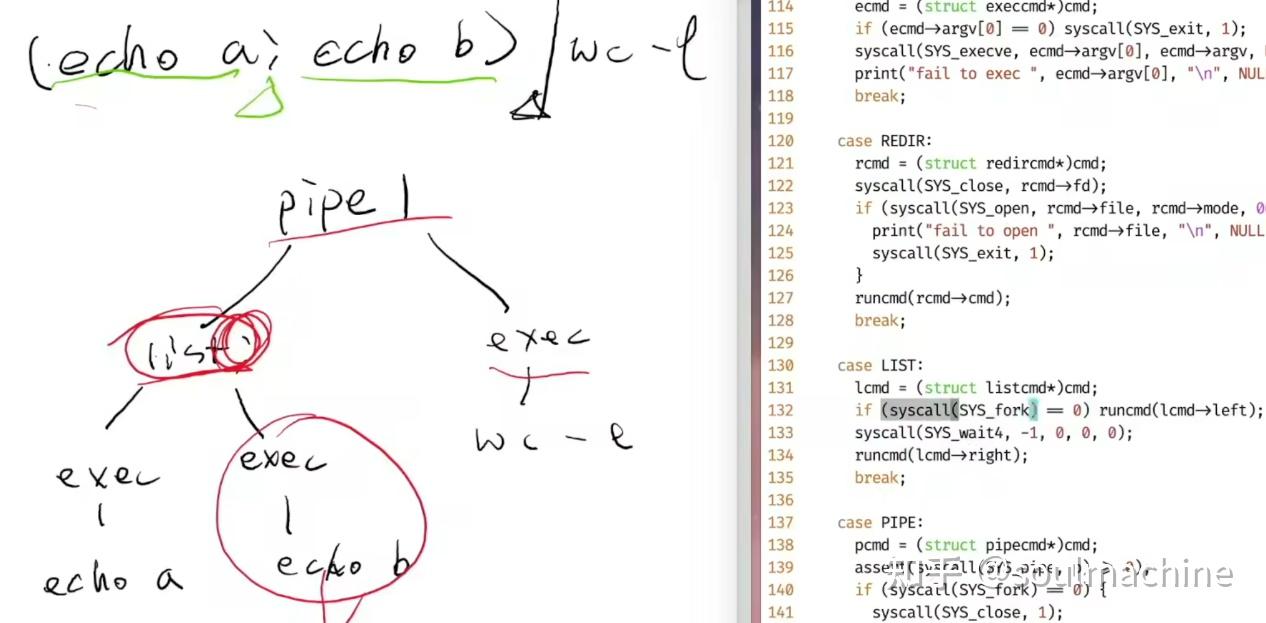 (echo a; echo b) | wc -l
pipe |
list ;
exec
exec
exec
wc - l
echo a
echo b
114 ecmd = (struct execcmd*)cmd;
115 if (ecmd→argv[0] == 0) syscall(SYS_exit, 1);
116 syscall(SYS_execve, ecmd→argv[0], ecmd→argv,
117 print("fail to exec ", ecmd→argv[0], "\n", NUL
118 break;
119
120 case REDIR:
121 rcmd = (struct redircmd*)cmd;
122 syscall(SYS_close, rcmd→fd);
123 if (syscall(SYS_open, rcmd→file, rcmd→mode, 0
124 print("fail to open ", rcmd→file, "\n", NULL
125 syscall(SYS_exit, 1);
126 }
127 runcmd(rcmd→cmd);
128 break;
129
130 case LIST:
131 lcmd = (struct listcmd*)cmd;
132 if (syscall(SYS_fork) == 0) runcmd(lcmd→left);
133 syscall(SYS_wait4, -1, 0, 0, 0);
134 runcmd(lcmd→right);
135 break;
136
137 case PIPE:
138 pcmd = (struct pipecmd*)cmd;
139 assert(syscall(SYS_pipe,
140 if (syscall(SYS_fork) == 0) {
141 syscall(SYS_close, 1);
知乎 @soulmachine